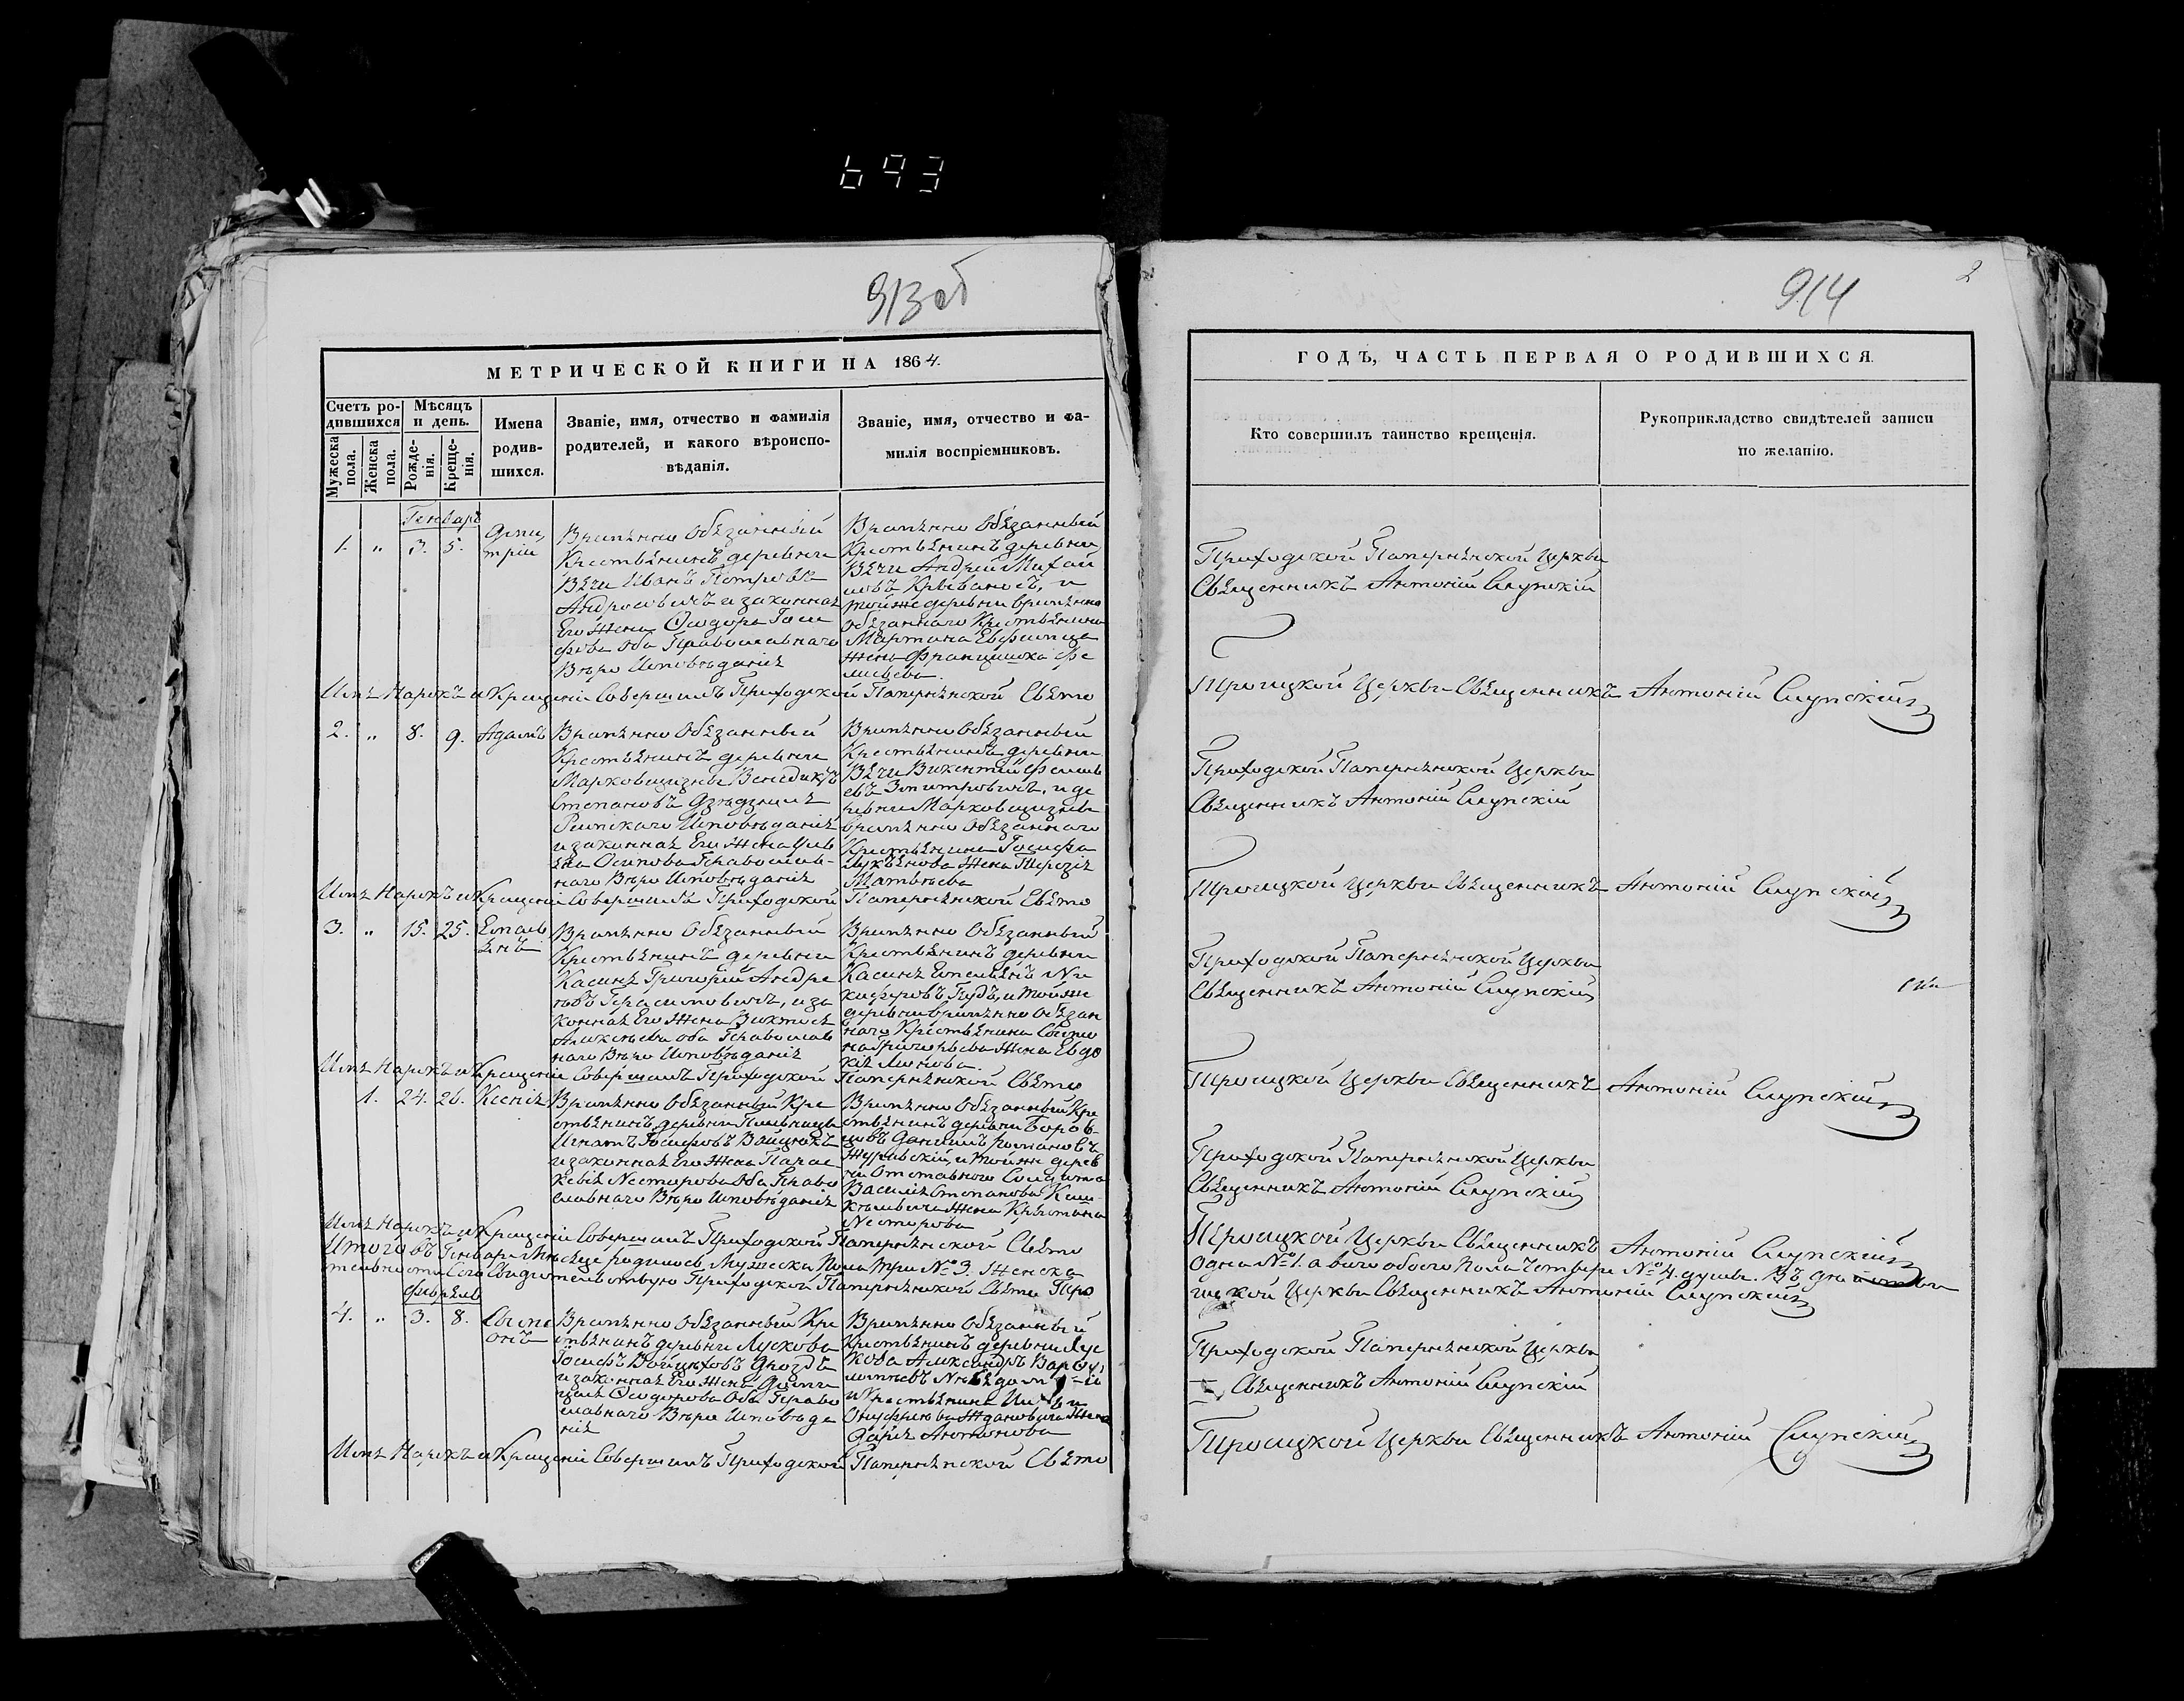 693
913об
МЕТРИЧЕСКОЙ КНИГИ НА 1864.
Счетъ ро-
дившихся
Мѣсяцъ
и день.
Мужеска
пола.
Женска
пола.
Рожде-
нія.
Креще-
нія.
Имена
родив-
шихся.
Званіе, имя, отчество и фамилія
родителей, и какого вѣроиспо-
вѣданія.
Званіе, имя, отчество и фа-
милія воспріемниковъ.
Генварь
1. „ 3. 5.
Дми
трій
Временно Обязанный
Крестьянинъ деревни
Вячи Иванъ Петровъ
и законная
Его Жена Ѳеодора Госи
фова Оба Православнаго
Веро Исповѣданія
Временно Обязанный
Крестьянинъ деревни
Вячи Андрей Михай
ловъ Кривонос, и
тойже деревни временно
обязаннаго Крестьянина
Мартина
жена Францишка Фе
Имя Нарекъ и Крещеніе Совершилъ Приходской Папернянской Свято
2. „ 8. 9. Адамъ
Временно Обязанный
Крестьянинъ деревни
Марковщизны Венедиктъ
Степановъ
Римскаго Исповѣданія
и законная Его Жена Уль
яна Осипова Православ-
наго Веро Исповѣданія
Временно Обязанный
Крестьянинъ деревни
Вячи Викентій
евъ и де
ревни Марковщизны
временно Обязаннаго
Крестьянина Госифа
Лукьянова Жена Терезія
Матвѣева
Имя Нарекъ и Крещеніе Совершилъ Приходской Папернянской Свято
3. „ 15. 25.
Емель
янъ
Временно Обязанный
Крестьянинъ деревни
Касиня Григорій Андре
евъ Герасимовичъ, и за
конная Его Жена Виктосія
Алексѣева оба Православ
наго Веро Исповѣданія
Временно Обязанный
Крестьянинъ деревни
Касиня Емельянъ Ни
кифоровъ и тойже
деревни временно обязан
наго Крестьянина
Григорьева Жена Евдо
кія
Имя Нарекъ и Крещеніе Совершилъ Приходской Папернянской Свято
1. 24. 26. Ксенія
Временно Обязанный Кре
стьянинъ деревни
Игнатъ Госифовъ Войцюкъ
и законная Его Жена Парас
кевія Нестерова Оба Право
славнаго Веро Исповѣданія
Временно Обязанный Кре
стьянинъ деревни
Даніилъ Романовъ
Журавскій, и тойже дерев
ни Отставного Солдата
Василія Степанова
Жена Крѣстина
Нестерова
Имя Нарекъ и Крещеніе Совершилъ Приходской Папернянской Свято
Итого въ Генварѣ Мѣсяце родилось Мужеска Пола три №3. Женска
тельности Сего Свидѣтельствую Приходской Папернянской Свято Тро
Февраль
4. „ 3. 8.
Симе
онъ
Временно Обязанный Кре
стьянинъ деревни Лускова
Госифъ Войцеховъ Дроздъ
и законная Его Жена Доми
ция Ѳеодорова Оба Право
славнаго Веро Исповѣда
нія
Временно Обязанный
Крестьянинъ деревни Лус
кова Александръ Варѳо
ломѣевъ
и Крестьянина
Онуфріева Ждановича Жена
Дарія Антонова
Имя Нарекъ и Крещеніе Совершилъ Приходской Папернянской Свято
914
2
ГОДЪ, ЧАСТЬ ПЕРВАЯ О РОДИВШИХСЯ
Кто совершилъ таинство крещенія.
Рукоприкладство свидѣтелей записи
по желанію.
Приходской Папернянской Церкви
Священникъ Антоній Слупскій
Троицкой Церкви Священникъ Антоній Слупскій
Приходской Папернянской Церкви
Священникъ Антоній Слупскій
Троицкой Церкви Священникъ Антоній Слупскій
Приходской Папернянской Церкви
Священникъ Антоній Слупскій
Троицкой Церкви Священникъ Антоній Слупскій
Приходской Папернянской Церкви
Священникъ Антоній Слупскій
Троицкой Церкви Священникъ Антоній Слупскій
Одна №1. а всего обоего пола Четыре №4. души. Въ действи
ицкой Церкви Священникъ Антоній Слупскій
Приходской Папернянской Церкви
Священникъ Антоній Слупскій
Троицкой Церкви Священникъ Антоній Слупскій